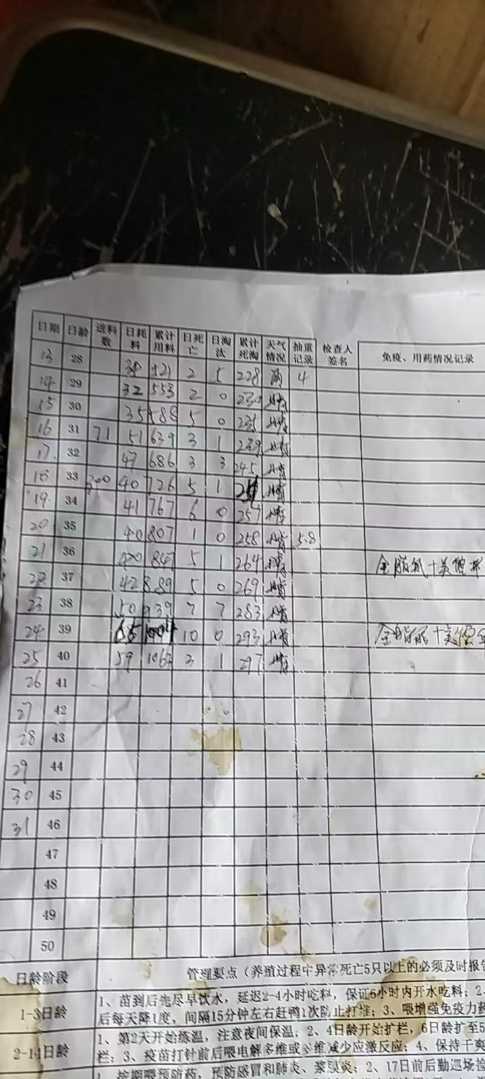 日期 日龄 进料数 日耗料 累计用料 日死亡 日淘汰 累计死淘 天气情况 抽重记录 检查人签名 免疫、用药情况记录
13 28 38 521 2 5 228 4
14 29 32 553 2 0
15 30 35 588 5 0 235 晴
16 31 71 51 639 3 1 239 晴
17 32 47 686 3 3 245 晴
18 33 40 726 5 1 晴
19 34 41 767 6 0 257 晴
20 35 40 807 1 0 258 晴 5.8
21 36 847 5 1 264 晴
22 37 42 889 5 0 269 晴
23 38 50 939 7 7 283 晴
24 39 65 1004 10 0 293 晴
25 40 59 1063 3 1 297 晴
26 41
27 42
28 43
29 44
30 45
31 46
47
48
49
50
日龄阶段 管理要点（养殖过程中异常死亡5只以上的必须及时报告
1-3日龄 1、苗到后先尽早饮水，延迟2-4小时吃料，保证6小时内开水吃料；2、
后每天降1度，间隔15分钟左右赶鸭1次防止打堆；3、喂增强免疫力药
2-14日龄 1、第2天开始炼温，注意夜间保温；2、4日龄开始扩栏，6日龄扩至5
栏；3、疫苗打针前后喂电解多维或多维减少应激反应；4、保持干爽
1、按期喂预防药，预防感冒和肺炎、浆膜炎；2、17日前后勤巡场捡